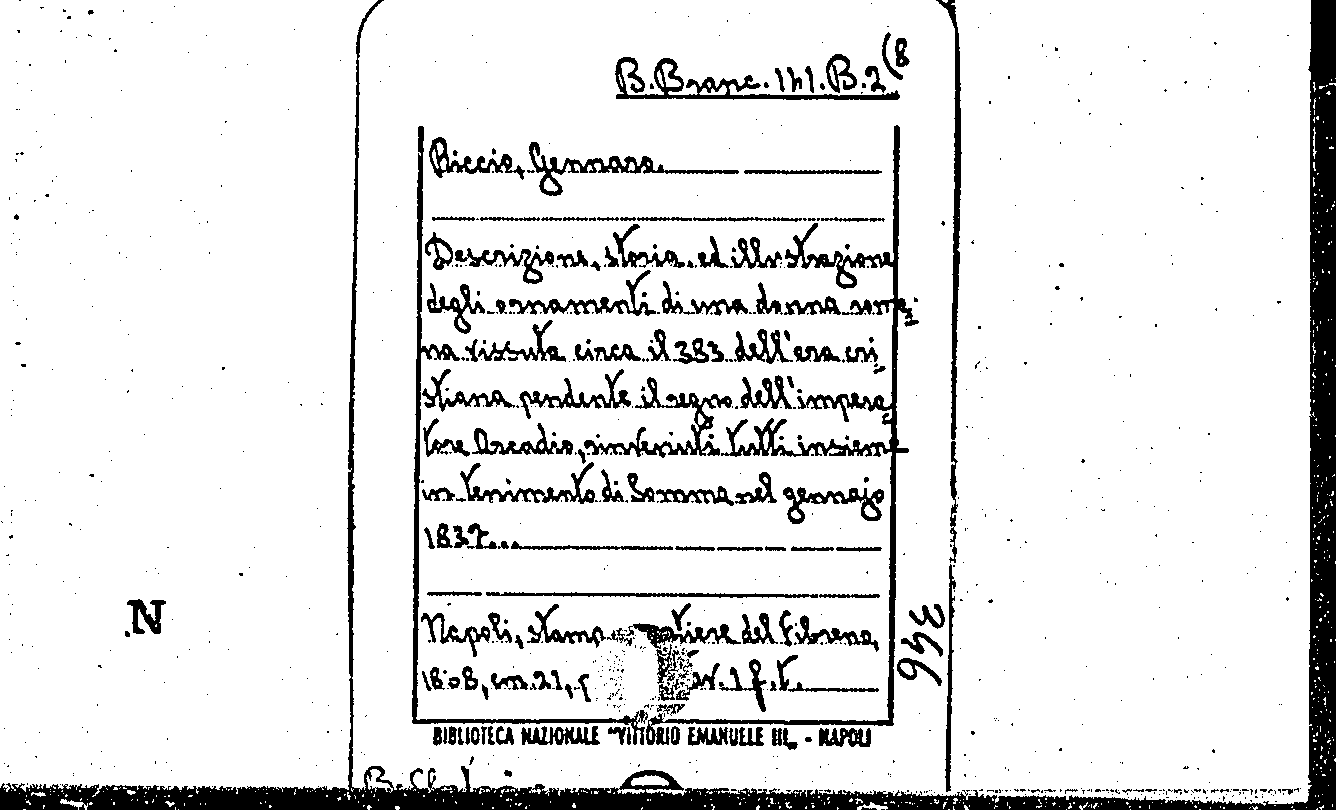 B. Branc. 141. B. 2 (8
Riccio, Gennaro.
Descrizione, storia ed illustrazione
degli ornamenti di una donna roma-
na vissuta circa il 383 dell'era cri
stiana pendente il regno dell'impera
tore Arcadio, rinvenuti tutti insieme
in tenimento di Somma nel gennajo
1837...
Napoli, stamp del Fibreno,
cm. 21, 1 f. t.
346
N
BIBLIOTECA NAZIONALE "VITTORIO EMANUELE III„ - NAPOLI